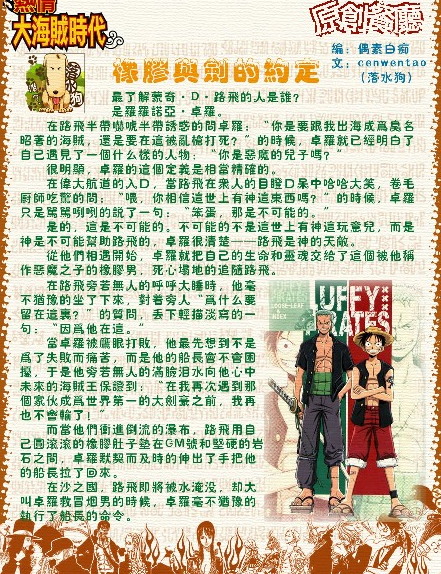 熱情
大海賊時代
原創餐廳
編：偶素白痴
文：cenwentao
（落水狗）
落水狗
橡膠與劍的約定
最了解蒙奇·D·路飛的人是誰？
是羅羅諾亞·卓羅。
在路飛半帶嚇唬半帶誘惑的問卓羅：“你是要跟我出海成爲臭名
昭著的海賊，還是要在這被亂槍打死？”的時候，卓羅就已經明白了
自己遇見了一個什么樣的人物：“你是惡魔的兒子嗎？”
很明顯，卓羅的這個定義是相當精確的。
在偉大航道的入口，當路飛在衆人的目瞪口呆中哈哈大笑，卷毛
厨師吃驚的問：“喂，你相信這世上有神這東西嗎？”的時候，卓羅
只是罵罵咧咧的說了一句：“笨蛋，那是不可能的。”
是的，這是不可能的。不可能的不是這世上有神這玩意兒，而是
神是不可能幫助路飛的，卓羅很清楚——路飛是神的天敵。
從他們相遇開始，卓羅就把自己的生命和靈魂交給了這個被他稱
作惡魔之子的橡膠男，死心塌地的追隨路飛。
在路飛旁若無人的呼呼大睡時，他毫
不猶豫的坐了下來，對着旁人“爲什么要
留在這裏？”的質問，丢下輕描淡寫的一
句：“因爲他在這。”
當卓羅被鷹眼打敗，他最先想到不是
爲了失敗而痛苦，而是他的船長會不會困
擾，于是他旁若無人的滿臉泪水向他心中
未來的海賊王保證到：“在我再次遇到那
個家伙成爲世界第一的大劍豪之前，我再
也不會輸了！”
而當他們衝進倒流的瀑布，路飛用自
己圓滾滾的橡膠肚子墊在GM號和堅硬的岩
石之間，卓羅默契而及時的伸出了手把他
的船長拉了回來。
在沙之國，路飛即將被水淹没，却大
叫卓羅救冒烟男的時候，卓羅毫不猶豫的
執行了船長的命令。
LUFFY
PIRATES